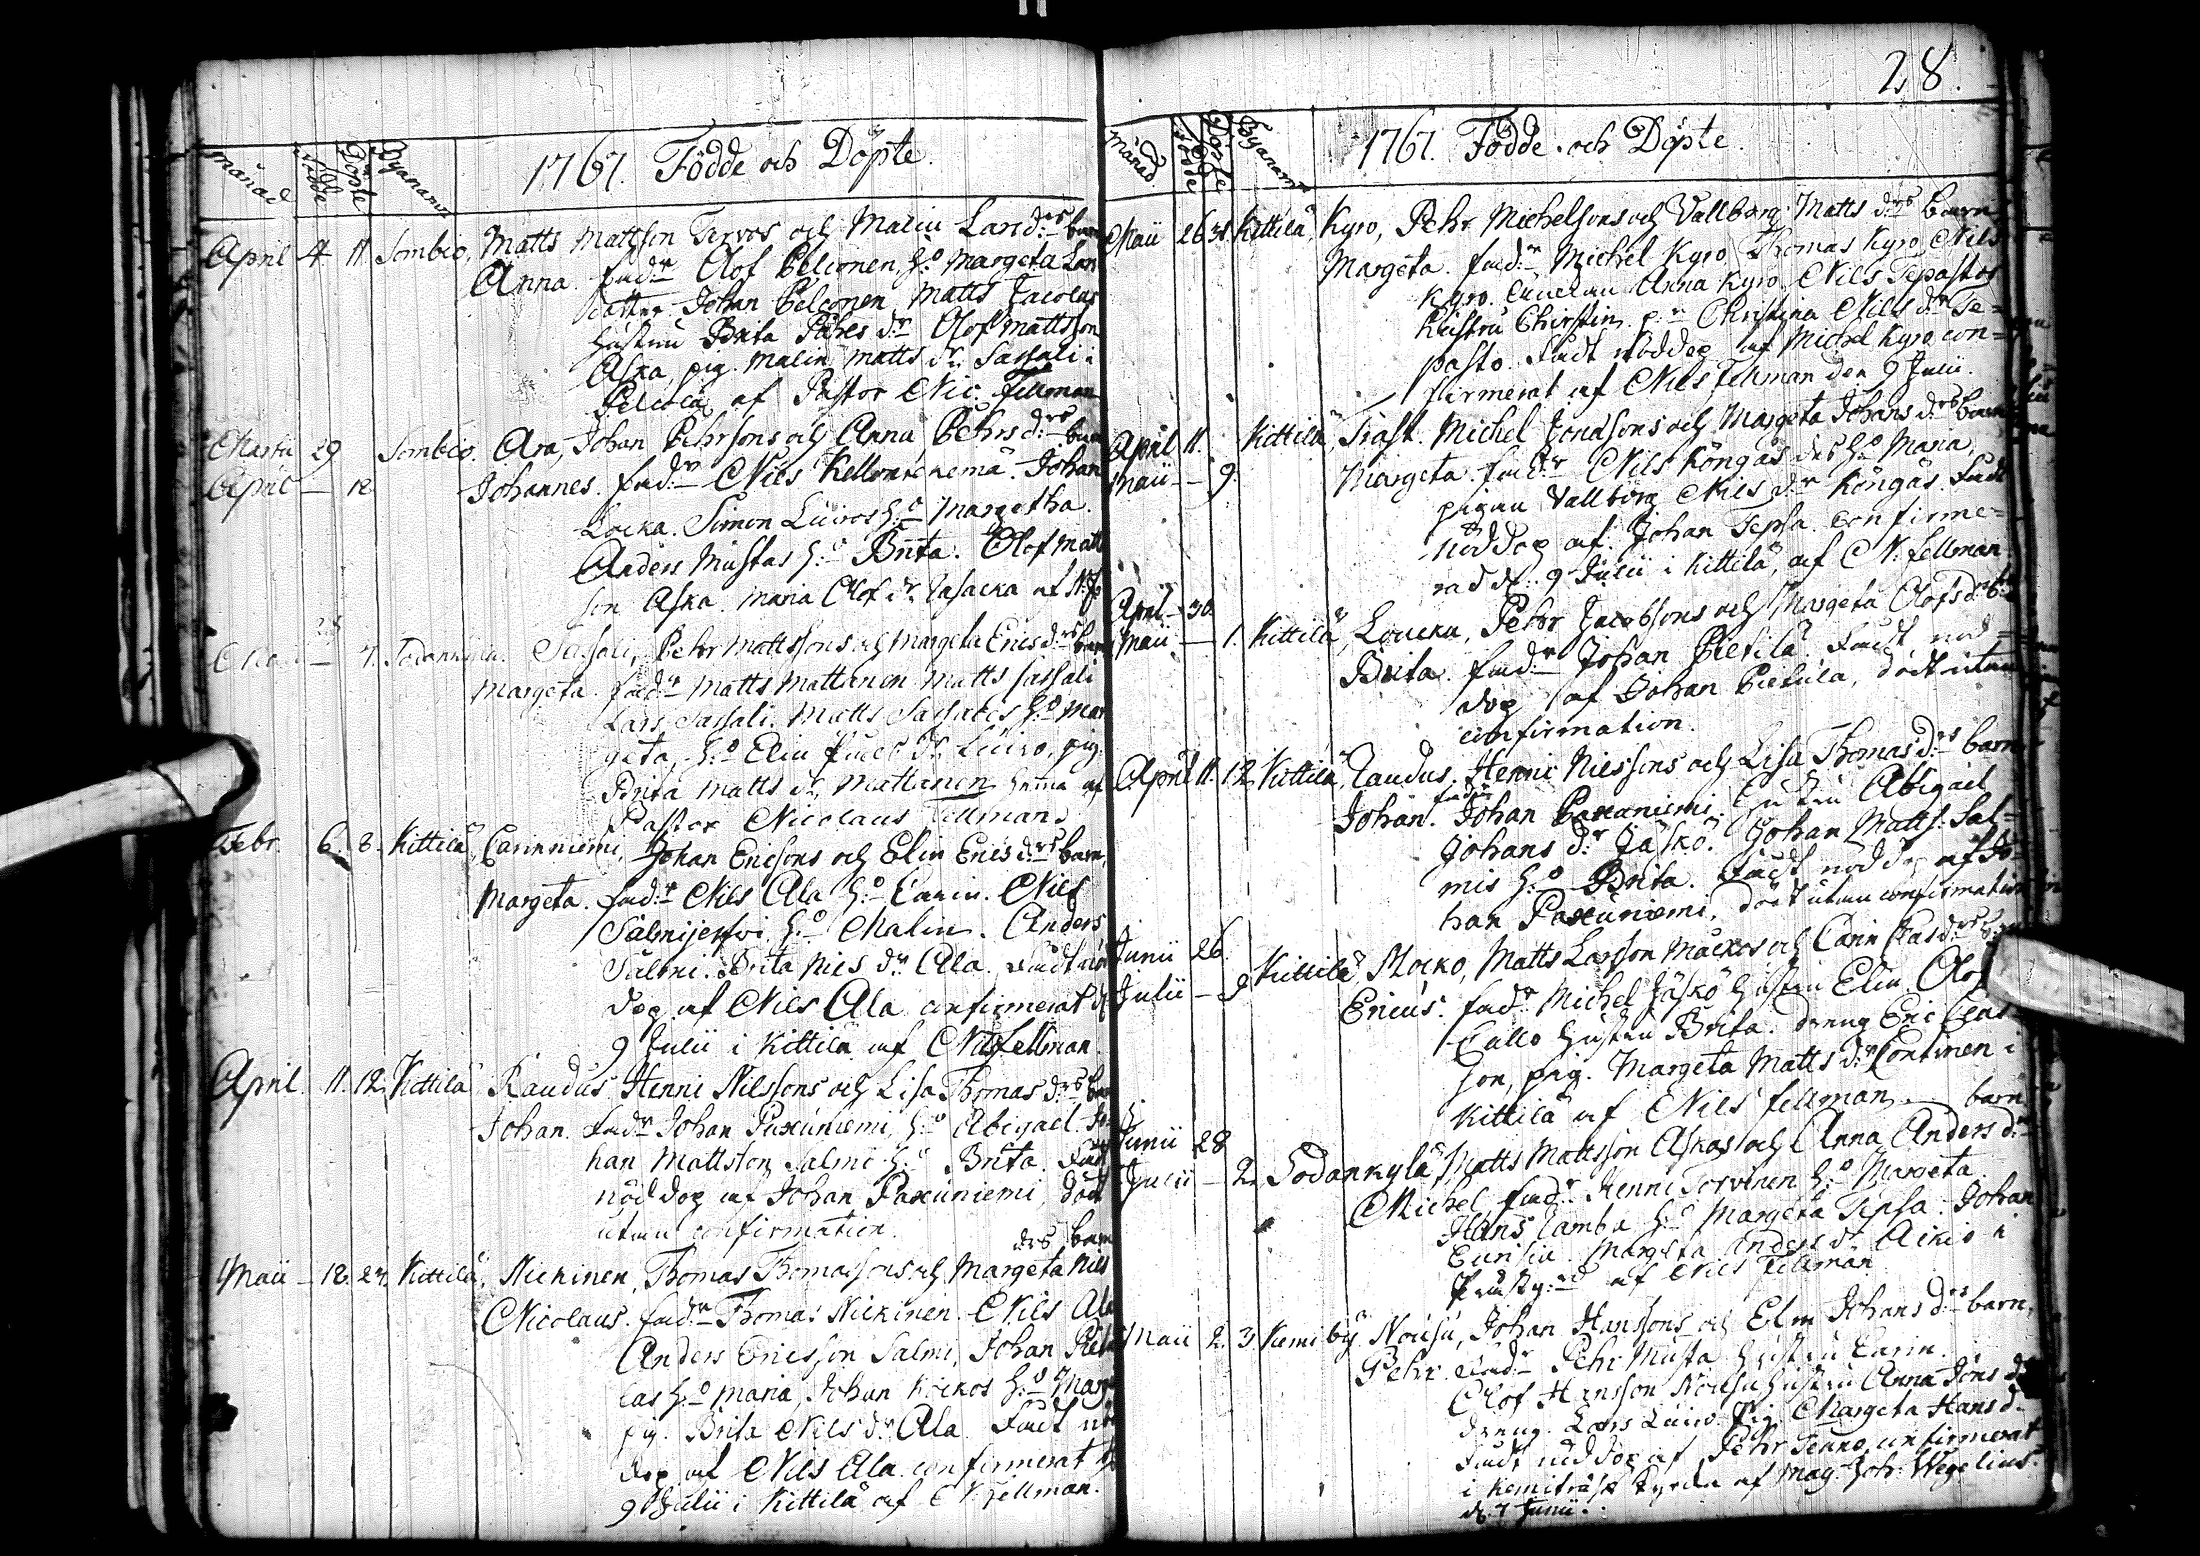 1767. Födde och Döpte.
Månad Födde Döpte Byanamn
April 4 11 Sombio, Matts Mattsson Torvos och Malin Larsd:rs barn
Anna. fad:r Olof Pelconen, h:o Margeta Lars
dotter Johan Pelconen, Matts Jacobs
hustru Brita Pehrs d:r Olof Mattsson
Aska, pig. Malin Matts d:r Sassali i
Pelcola af Pastor Nic. Fellman
Martii 29 Sombio. Ara, Johan Pehrsons och Anna Pehrsd:rs barn
April — 12 Johannes. fad:r Nils Johan
Locka. Simon Luiros h:o Margetha.
Anders Mustas h:o Brita. Olof Matts
son Aska. Maria Olof d:r af N. F.
7. Sodankylä. Sassali, Pehr Mattssons och Margeta Ericsd:rs barn
Margeta. fad:r Matts Mattanen Matts Sassali
Lars Sassali. Matts Sassalis h:o Mar
geta, h:o Elin d:r Luiro, pig.
Brita Matts d:r Mattanen hemma af
Pastor Nicolaus Fellman.
Febr. 6. 8. Kittilä, Carinniemi, Johan Ericsons och Elin Ericsd:rs barn,
Margeta. fad:r Nils Ala h:o Carin. Nils
Salmijerfvi h:o Malin. Anders
Salmi. Brita Nils d:r Ala. Fådt nöd
dop af Nils Ala confirmerat d.
9 Julii i Kittilä af Nils Fellman.
April. 11. 12. Kittilä Raudus Henric Nilssons och Lisa Thomas d:rs barn
Johan. fad:r Johan Paxuniemi, h:o Abigael Jo
han Mattsson Salmi h:o Brita. Fådt
nöddop af Johan Paxuniemi, dödt
utan confirmation.
d:rs barn
Maii — 18. 24. Kittilä, Nickinen, Thomas Thomassons och Margeta Nils
Nicolaus. fad:r Thomas Nickinen. Nils Ala
Anders Ericsson Salmi, Johan Pietu
las h:o Maria, JohanKöckos h:o Marg
pig. Brita Nils d:r Ala. Fådt nöd
dop af Nils Ala confirmerat d.
9 Julii i Kittilä af N. Fellman.
28.
1767. Födde och Döpte.
Månad Födde Döpte Byanamn
Maii 26 31. Kittilä, Kyro, Pehr Michelsons och Vallborg Matts d:rs barn
Margeta. fad:r Michel Kyro, Thomas Kyro, Nils
Kyro. Anna Kyro. Nils Tepastos
hustru Christin. p:n Christina Nils d:r Te=
pasto. Fådt nöddop af Michel Kyro con=
firmerat af Nils Fellman den 9 Julii.
April 11. Kittilä, Trast. Michel Jonassons och Margeta Johans d:rs barn
Maii — 9. Margeta. fad:r Nils Köngäs des h:o Maria,
pigan Vallborg Nils d:r Köngäs. Fådt
nöddop af Johan Tepsa. confirme=
rad d. 9 Julii i Kittilä, af N. Fellman
April — 30
Maii — 1. Kittilä, Loucka, Pehr Jacobssons och Margeta Olofsd:rs b:n
Brita. fad:r Johan Pietilä. Fådt nöd=
dop af Johan Pietula, dödt utan
confirmation.
April 11. 12. Kittilä, Raudus. Henric Nilssons och Lisa Thomas d:rs barn
fad:r
Johan. Johan Paxuniemi, hustru Abigael
Johans d:r Jäskö. Johan Matts. Sal=
mis h:o Brita. Fådt nöddop af Jo=
han Paxuniemi, dödt utan confirmation
Junii 26. Kittilä Mocko, Matts Larsson Mackos och Carin Clas d:rs b:n
Julii — 9 Ericus. fad:r Michel Jäskö hustru Elin. Olof
Callo hustru Brita. dreng Eric Clas
son, pig. Margeta Matts d:r Continen i
Kittilä af Nils Fellman.
barn
Junii 28
Julii — 2. Sodankylä, Matts Mattsson Askas och Anna Anders d:rs
Michel, fad:r Henric Torvinen h:o Margeta.
Hans Camba h:o Margeta Tepsa. Johan
Margeta Anders d:r Aikio i
af Nils Fellman
Maii 2. 3. Kemi by. Nousu, Johan Hanssons och Elin Johans d:rs barn.
Pehr. fad:r Pehr Musta hustru Carin.
Olof Hansson Nousu hustru Anna Jöns d:r
dreng. Lars Luiro. Pig. Margeta Hans d.
Fådt nöddop af Pehr Tenno, confirmerat
i Kemiträsk Kyrka af Mag. Joh: Wegelius.
d. 7 Junii.